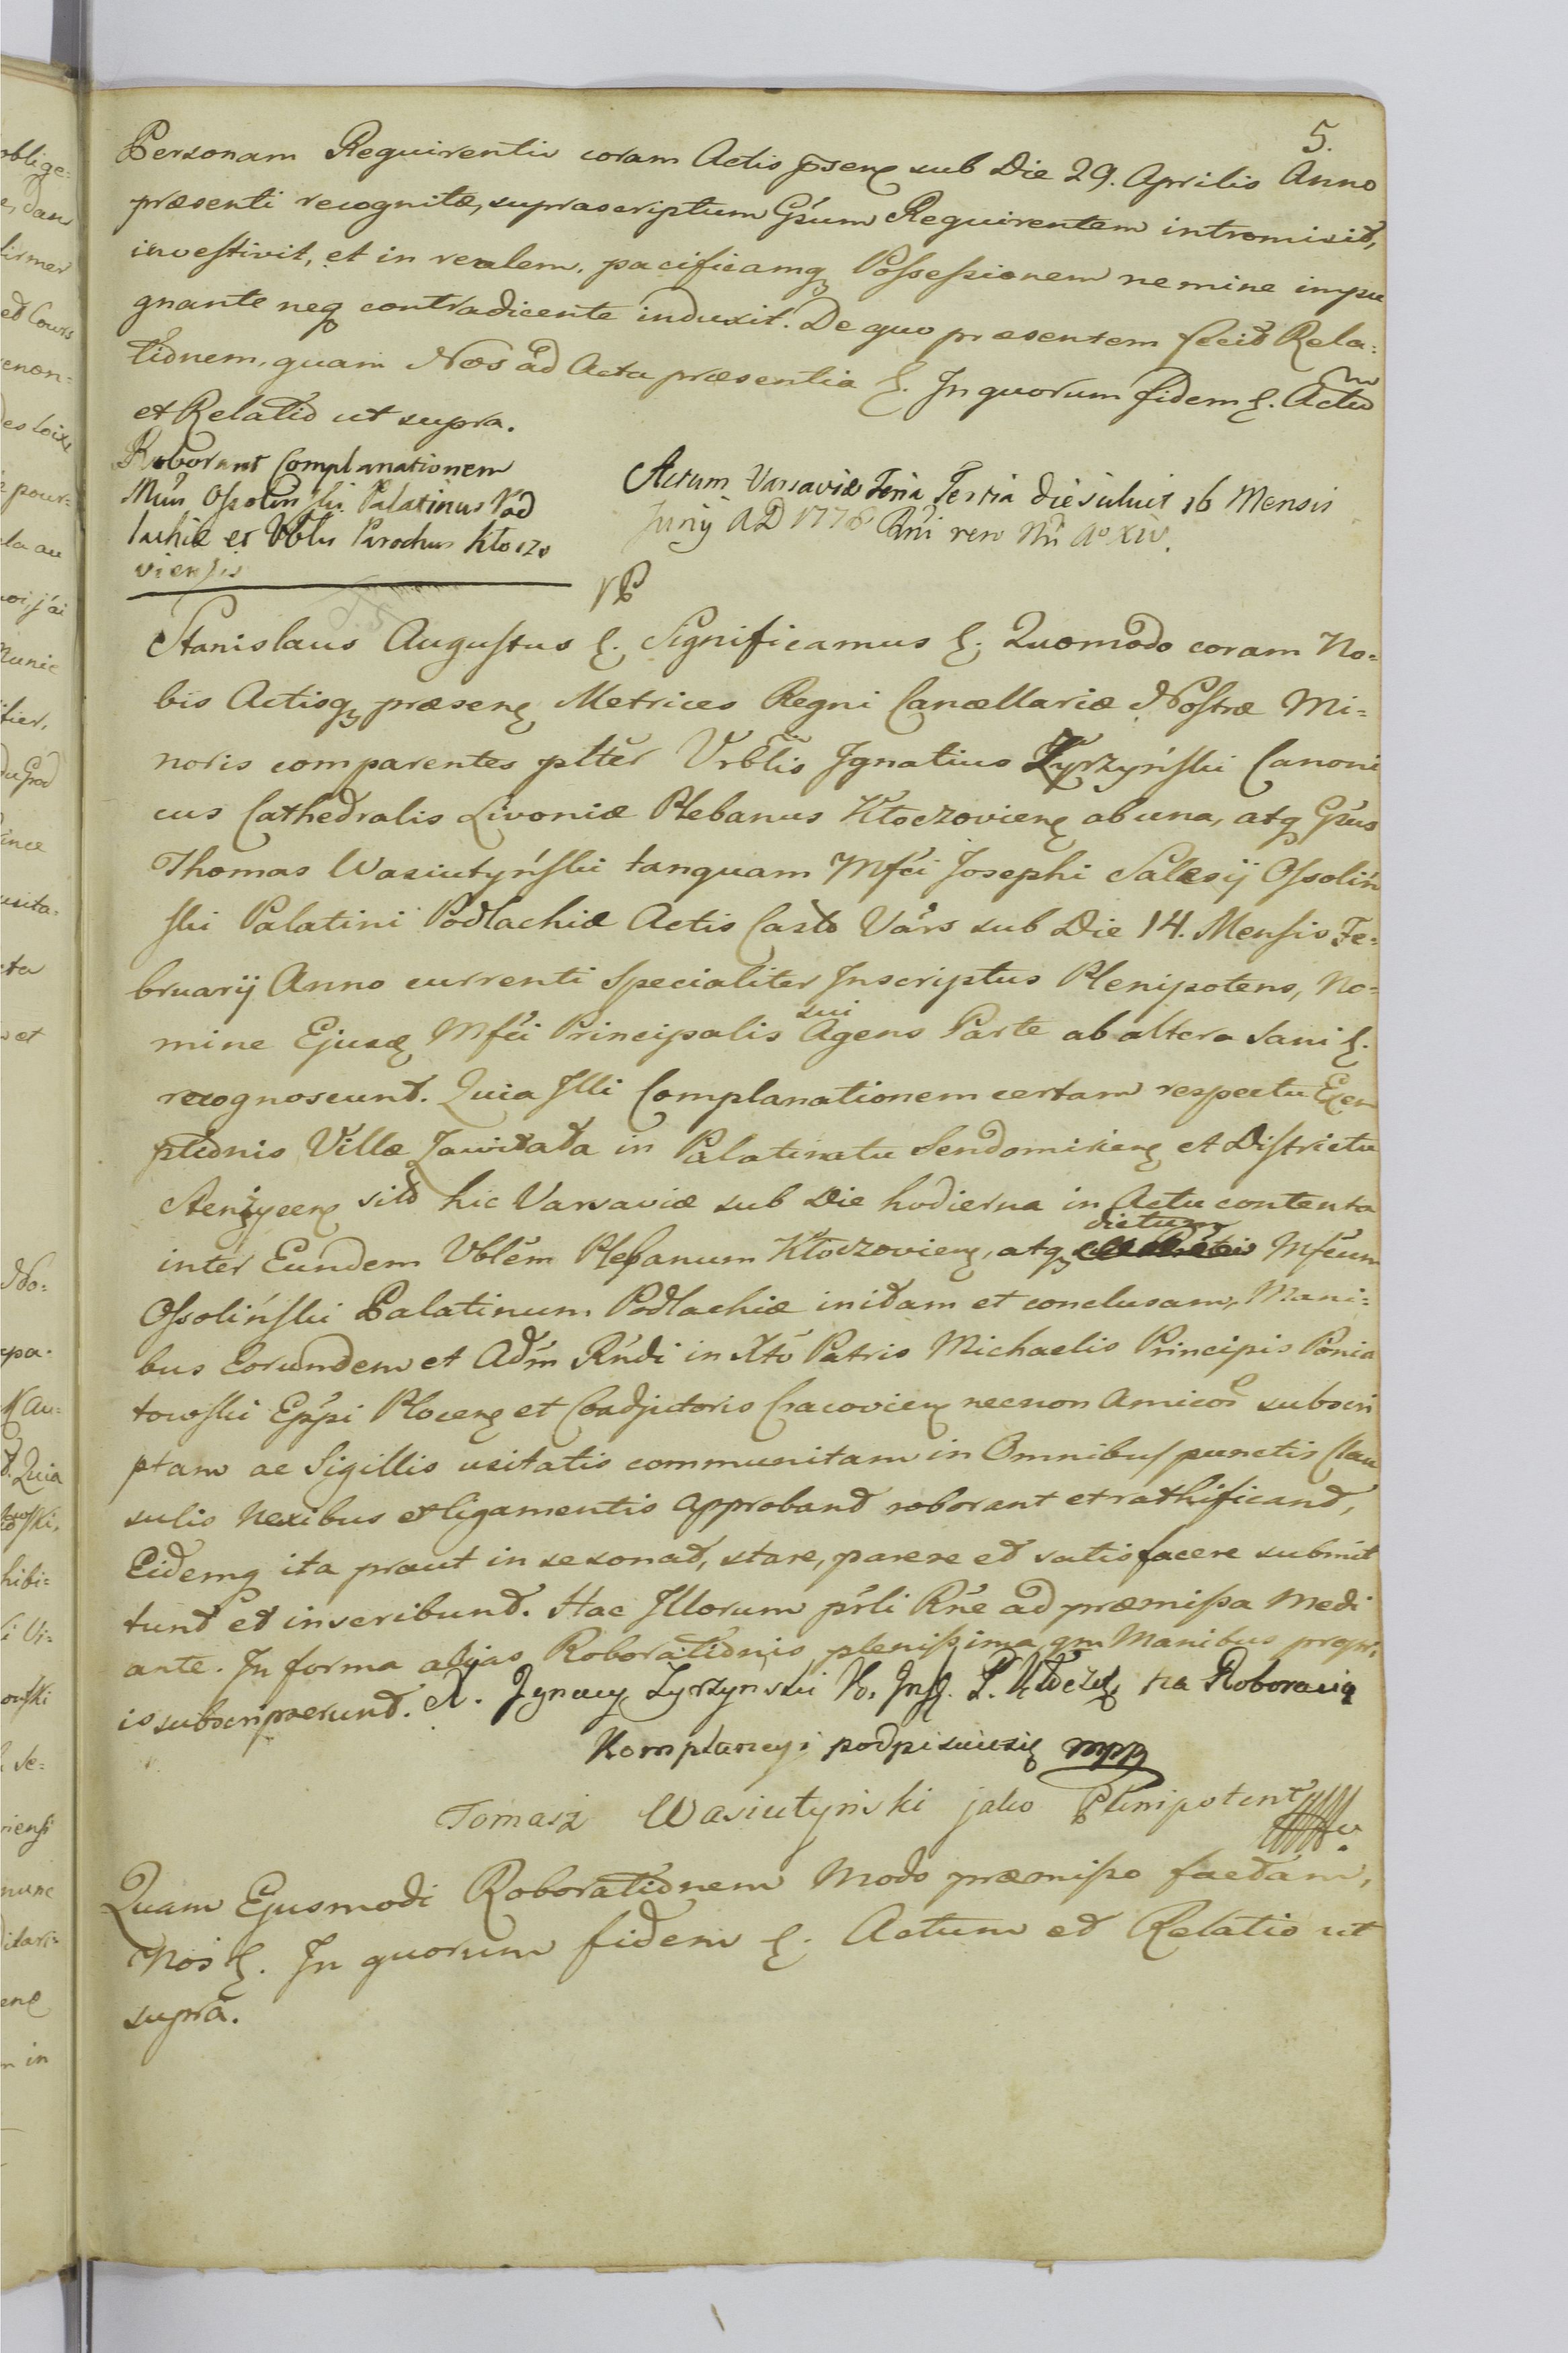 5.
Personam Requirentis coram Actis pñseñ sub Die 29. Aprilis Anno
præsenti recognitæ, suprascriptum Gsum Requirentem intromisit,
investivit, et in realem, pacificamq Possessionem nemine impu
gnante neq contradicente induxit. De quo præsentem fecit Rela:
tionem, quam Nos ad Acta præsentia &. In quorum fidem &. Actu
et Relatio ut supra.
Roborant Complanationem
Mfus Ossolinski Palatinus Pod
lachiæ et Vblis Parochus Kłoczo
viensis
Actum Varsaviæ Feria Tertia die scilicet 16 Mensis
Junij AD 1778 Rni vero Nri Ao XIV.
Stanislaus Augustus &. Significamus &. Quomodo coram No=
bis Actisq præsen Metrices Regni Cancellariæ Nostræ Mi=
noris comparentes plter Vrblis Ignatius Zyrzyński Canoni
cus Cathedralis Livoniæ Plebanus Kłoczovien ab una, atq Gsus
Thomas Wasiutyński tanquam Mfci Josephi Salesij Ossoliń
ski Palatini Podlachiæ Actis Castr Vars sub Die 14. Mensis Fe=
bruarij Anno currenti Specialiter Inscriptus Plenipotens, No=
mine Ejusd Mfci Principalis sui Agens Parte ab altera Sani &.
recognoscunt. Quia Illi Complanationem certam respectu Exem
ptionis Villæ Zawitała in Palatinatu Sendomirien et Districtu
Stenżycen sit hic Varsaviæ sub Die hodierna in Actu contenta
inter Eundem Vblem Plebanum Kłoczovien, atq dictum Mfcum
Ossoliński Palatinum Podlachiæ initam et conclusam, Mani=
bus Eorundem et Adm Rndi in Xto Patris Michaelis Principis Ponia
towski Eppi Plocen et Coadjutoris Cracovien necnon Amicor subscri
ptam ac Sigillis usitatis communitam in Omnibus punctis Clau
sulis Nexibus et ligamentis approband roborant et rathificand,
Eidemq ita prout in se sonat, stare, parere et satisfacere submit
tunt et inscribunt. Hac Illorum prli Rne ad præmissa Medi
ante. In forma alias Roborationis plenissima qm Manibus propr,
is subscripserunt. X. Ignacy Zyrzynski K. Infl. P. Kłoczo. tą Roboracią
Komplanacyi podpisuię się mpp
Tomasz Wasiutyński jako Plenipotent
Quam Ejusmodi Roborationem Modo præmisso factam,
Nos &. In quorum fidem &. Actum et Relatio ut
supra.